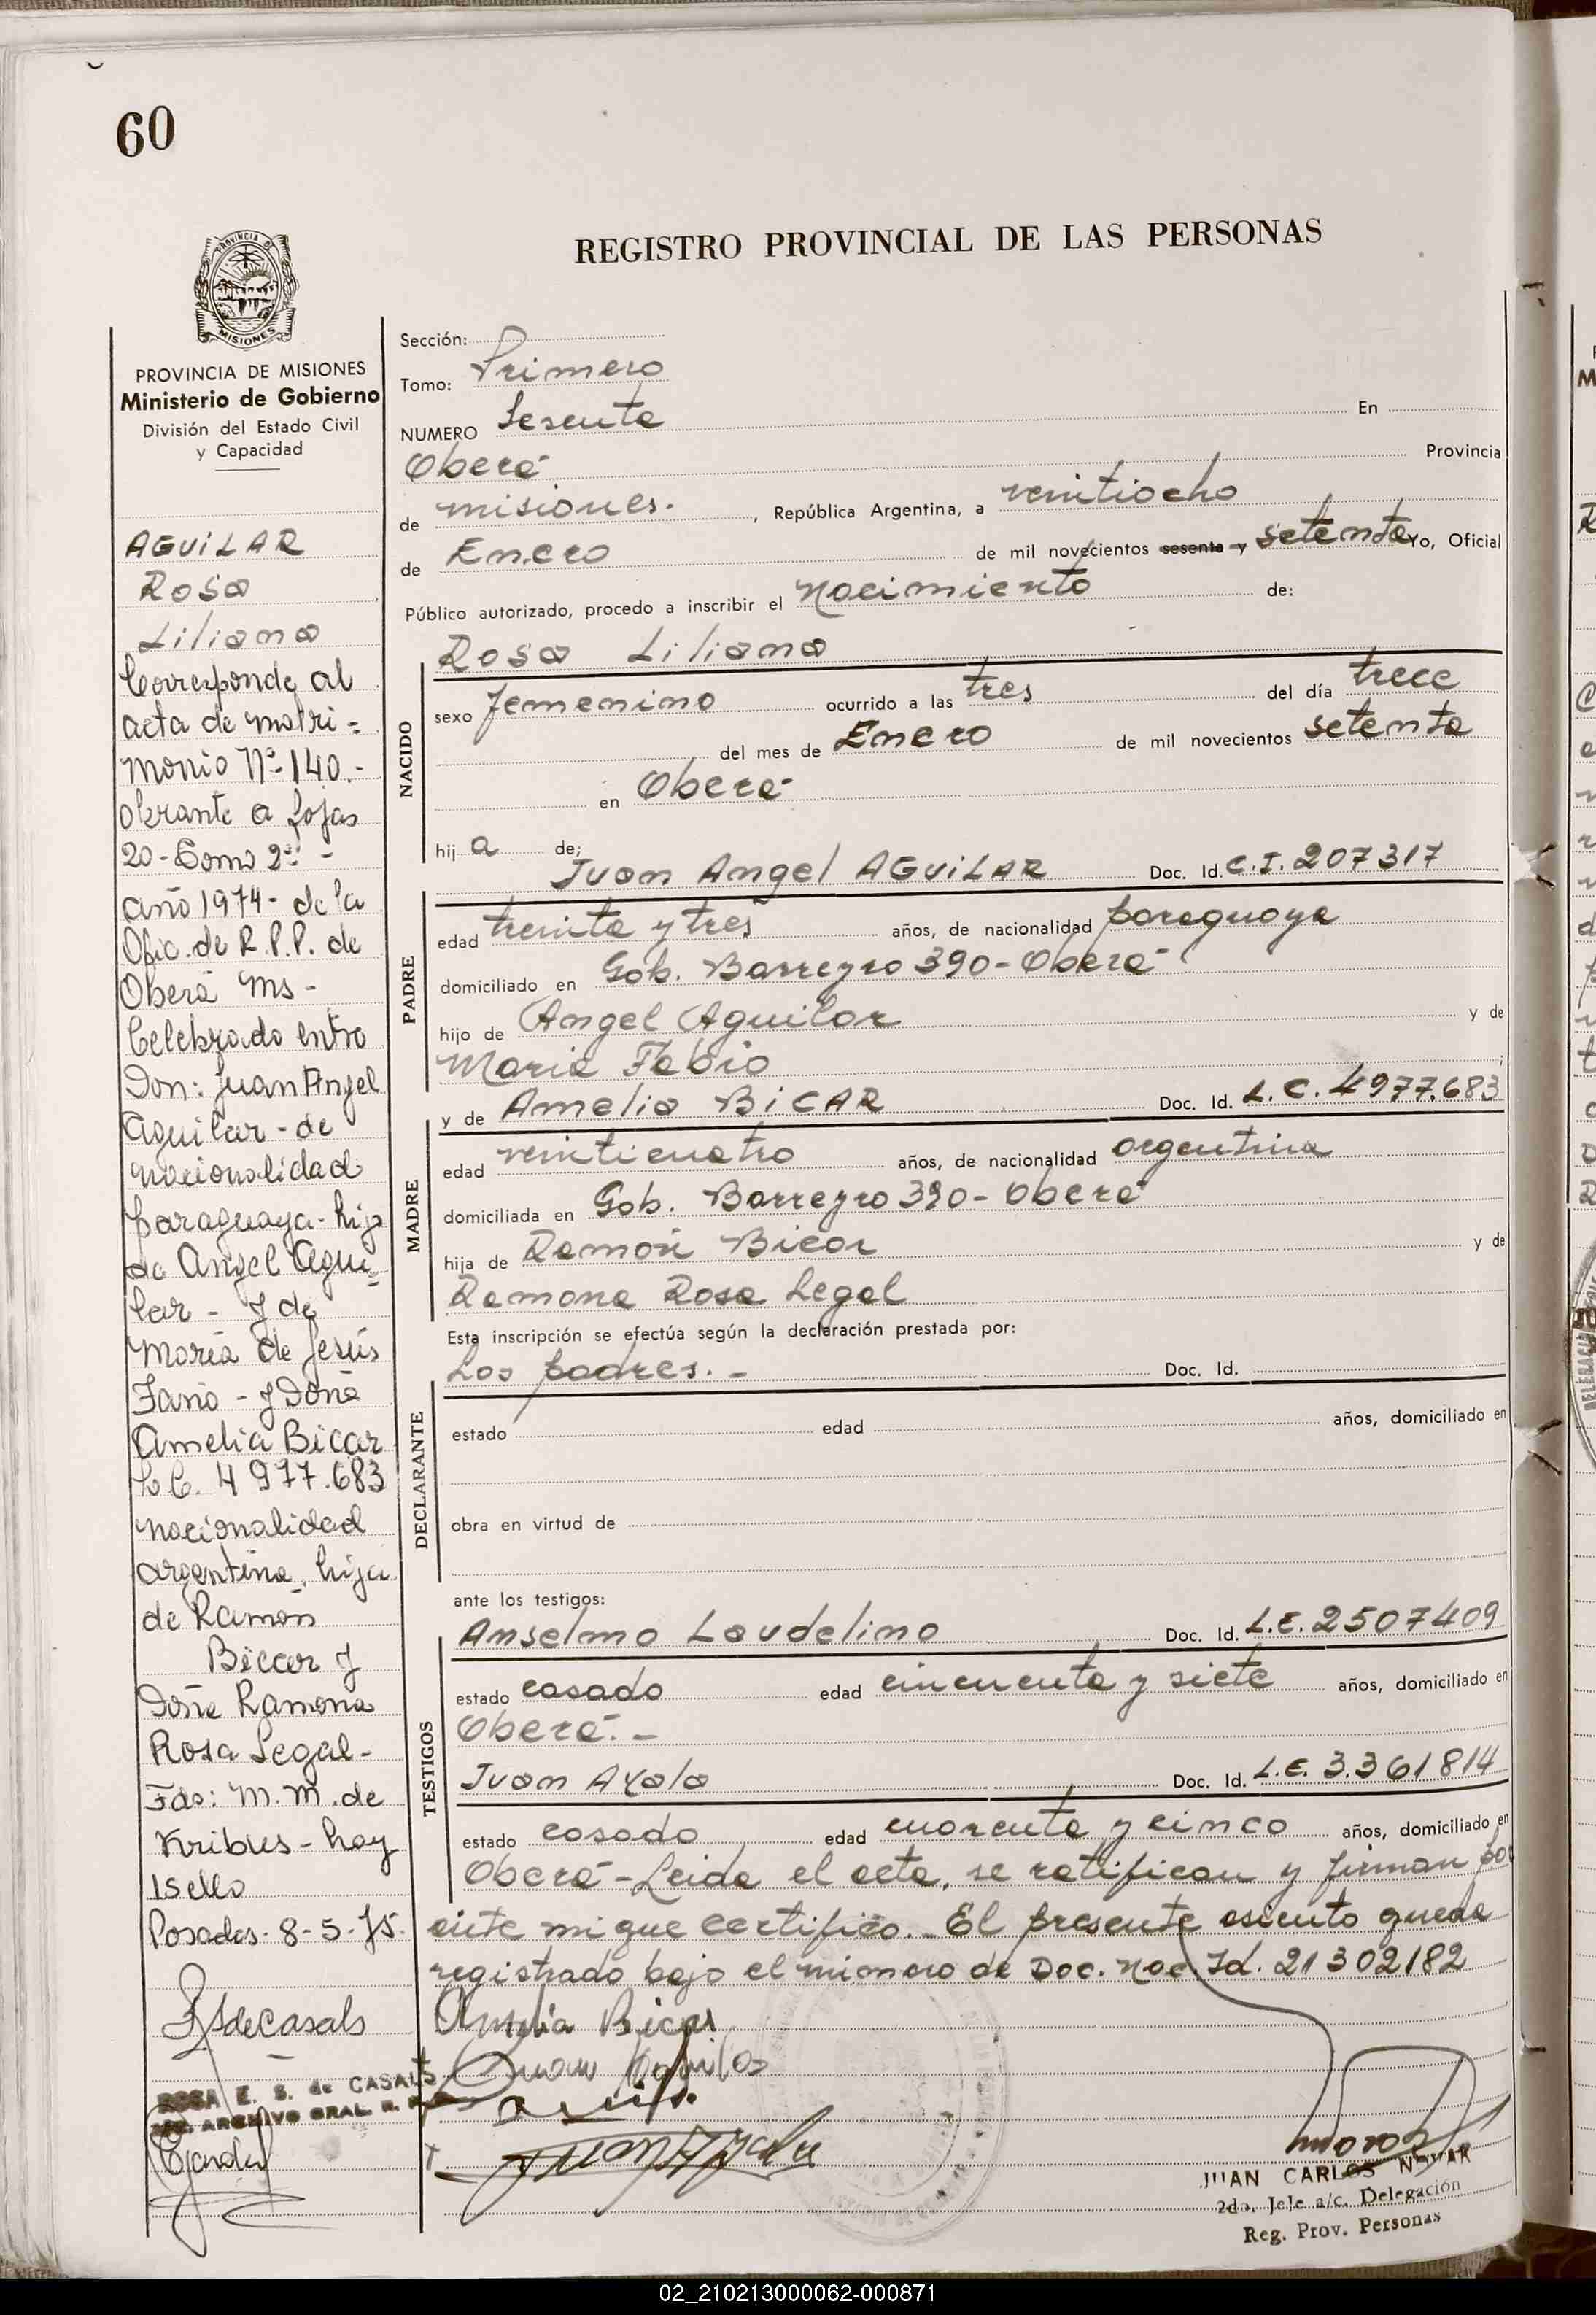 60
PROVINCIA DE
MISIONES
REGISTRO PROVINCIAL DE LAS PERSONAS
PROVINCIA DE MISIONES
Ministerio de Gobierno
División del Estado Civil
y Capacidad
AGUILAR
Rosa
Liliana
Corresponde al
acta de matri=
monio Nº 140.-
obrante a fojas
20 - Tomo 2º -
año 1974 - de la
Ofic. de R.P.P. de
Oberá Ms -
Celebrado entre
Don: Juan Angel
Aguilar - de
nacionalidad
paraguaya - hijo
de Angel Agui=
lar - y de
María de Jesús
- y Doña
Amelia Bicar
L.C. 4977.683
nacionalidad
argentina, hija
de Ramón
Bicar y
Doña Ramona
Rosa Legal -
Fdo: M. M. de
Kribus - hay
1 sello
Posadas - 8-5-75.
RSdeCasals
ROSA E. S. de CASALS
ARCHIVO GRAL. R.
Sección:
Tomo: Primero
NUMERO Sesenta En
Oberá Provincia
de misiones. , República Argentina, a veintiocho
de Enero de mil novecientos sesenta y setenta Yo, Oficial
Público autorizado, procedo a inscribir el nacimiento de:
Rosa Liliana
NACIDO
sexo femenino ocurrido a las tres del día trece
del mes de Enero de mil novecientos setenta
en Oberá
hij a de;
Juan Angel AGUILAR Doc. Id. C.I. 207317
PADRE
edad treinta y tres años, de nacionalidad paraguaya
domiciliado en Gob. Barreyro 390 - Oberá
hijo de Angel Aguilar y de
Maria Fabio ;
y de Amelia BICAR Doc. Id. L.C. 4977.683
MADRE
edad veinticuatro años, de nacionalidad argentina
domiciliada en Gob. Barreyro 390 - Oberá
hija de Ramón Bicar y de
Ramona Rosa Legal
Esta inscripción se efectúa según la declaración prestada por:
Los padres. - Doc. Id.
DECLARANTE
estado edad años, domiciliado en
obra en virtud de
ante los testigos:
Anselmo Laudelino Doc. Id. L.E. 2507409
TESTIGOS
estado casado edad cincuenta y siete años, domiciliado en
Oberá. -
Juan Ayala Doc. Id. L.E. 3.361814
estado casado edad cuarenta y cinco años, domiciliado en
Oberá - Leida el acta, se ratifican y firman por
ante mi que certifico. - El presente asiento queda
registrado bajo el número de Doc. Nac. Id. 21302182
Amelia Bicar
Juan Aguilar
Juan Ayala
JUAN CARLOS
2do. Jefe a/c. Delegación
Reg. Prov. Personas
02_210213000062-000871